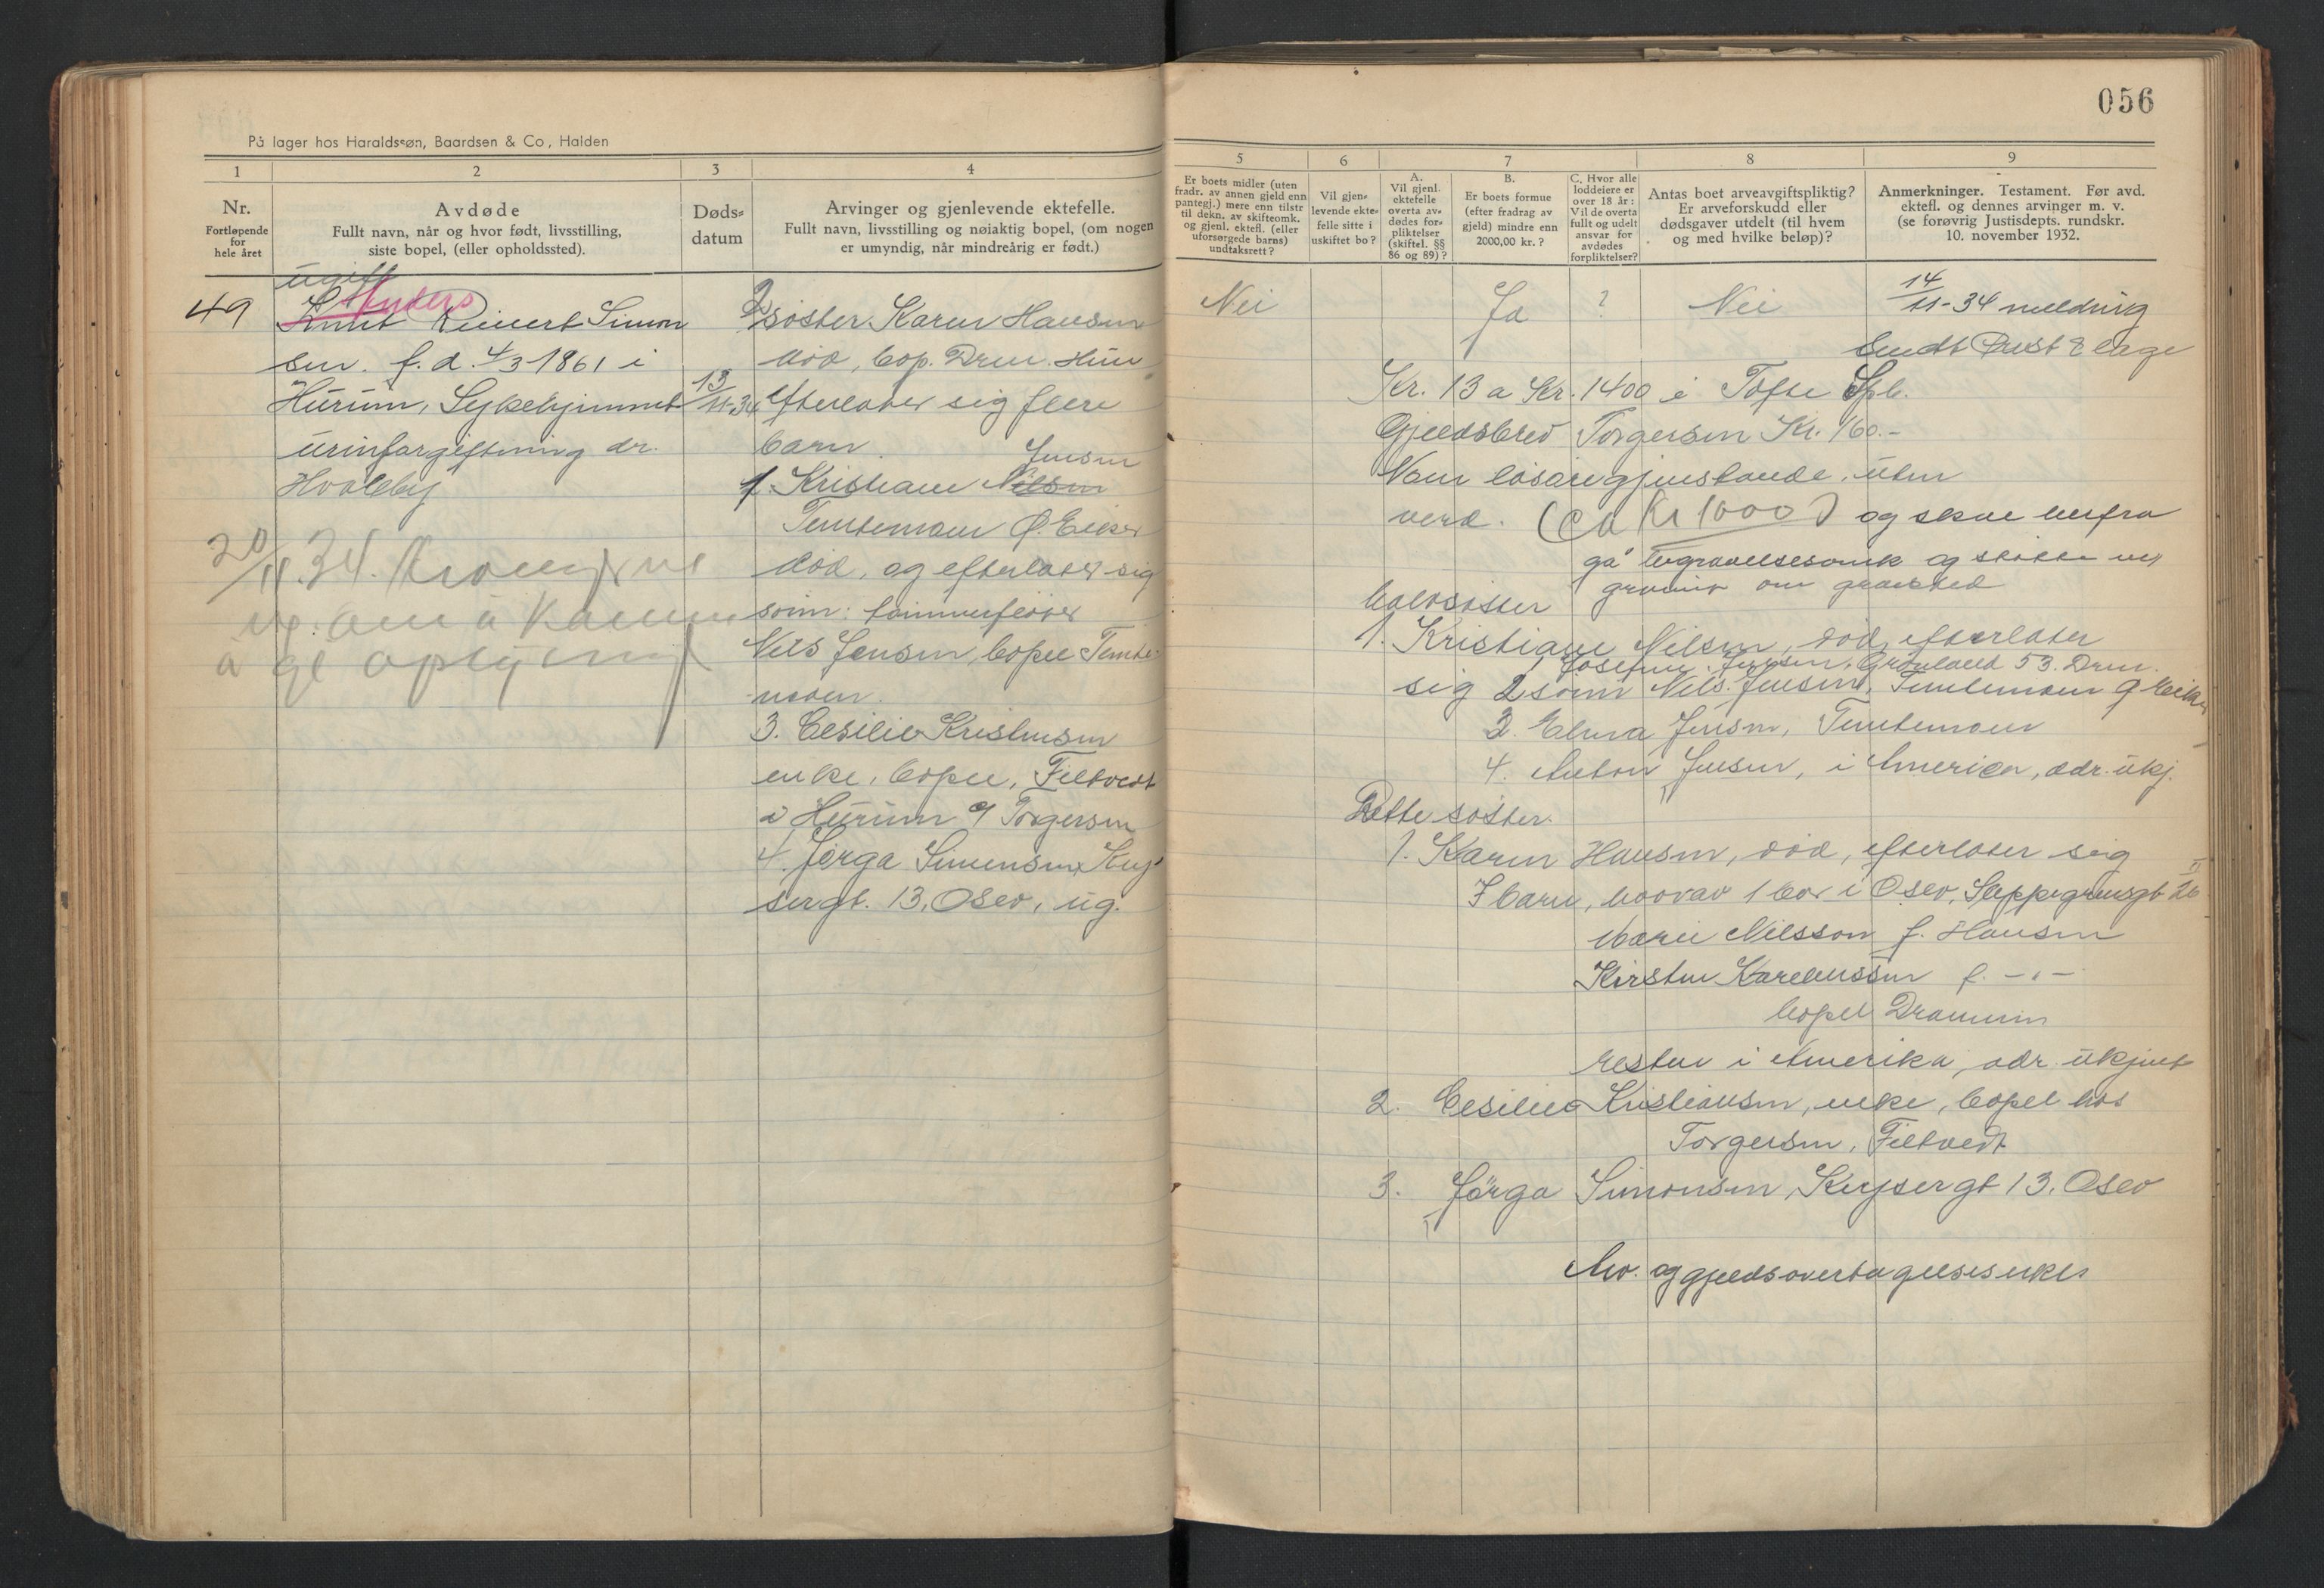 På lager hos Haraldssøn, Baardsen & Co, Halden
1
2
3
4
Nr.
Fortløpende
for
hele året
Avdøde
Fullt navn, når og hvor født, livsstilling,
siste bopel, (eller opholdssted).
Døds-
datum
Arvinger og gjenlevende ektefelle.
Fullt navn, livsstilling og nøiaktig bopel, (om nogen
er umyndig, når mindreårig er født.)
ugift
Anders
49
Knut Reinert Simon
sen. f.d. 4/3-1861 i
Hurum, Sykehjemmet
urinforgiftning dr.
Hvaleby
20/11.34.
13/11-34
2 søster Karen Hansen
død, bop. Drm. Hun
efterlater sig flere
barn.
Jensen
1. Kristiane Nilsen
Temtemoen Ø. Eiker
død, og efterlater sig
sønn: tømmerfløter
Nils Jensen, bopel Temte-
moen.
3. Cesilie Kristensen
enke, bopel, Filtvedt
i Hurum Torgersen
4. Jørga Simensen, Keys
sergt. 13, Oslo, ug.
056
5
6
7
8
9
Er boets midler (uten
fradr. av annen gjeld enn
pantegj.) mere enn tilstr
til dekn. av skifteomk.
og gjenl. ektefl. (eller
uforsørgede barns)
undtaksrett?
Vil gjen-
levende ekte-
felle sitte i
uskiftet bo?
A.
Vil gjenl.
ektefelle
overta av-
dødes for-
pliktelser
(skiftel. §§
86 og 89)?
B.
Er boets formue
(efter fradrag av
gjeld) mindre enn
2000,00 kr.?
C. Hvor alle
loddeiere er
over 18 år:
Vil de overta
fullt og udelt
ansvar for
avdødes
forpliktelser?
Antas boet arveavgiftspliktig?
Er arveforskudd eller
dødsgaver utdelt (til hvem
og med hvilke beløp)?
Anmerkninger. Testament. Før avd.
ektefl. og dennes arvinger m. v.
(se forøvrig Justisdepts. rundskr.
10. november 1932.
Nei
Ja
?
Nei
14/11-34 melding
sendt
Kr. 13 a Kr. 1400 i Tofte Spb.
Gjeldsbrev Torgersen Kr. 160.-
Noen løsøregjenstande, uten
verd. (ca Kr 1000) og skal herfra
gå begravelsesomk og
om gravsted
Halvsøster
1. Kristiane Nilsen, død, efterlater
1 Josefine Jensen, Grønland 53. Drm.
sig 2 sønn Nils Jensen, Temtemoen Ø Eiker
3. Elma Jensen, Temtemoen
4. Anton Jensen, i Amerika, adr. ukj.
Rette søster.
1. Karen Hansen, død, efterlater sig
7 barn, hvorav 1 bor i Oslo, Steppegrensgt 26 II
Marie Nilsson f. Hansen
Kirsten Kareliussen f. -"-
bopel Drammen
resten i Amerika, adr. ukjent
2. Cesilie Kristiansen, enke, bopel hos
Torgersen, Filtvedt
3. Jørga Simonsen, Keysergt 13. Oslo
Arv. og gjeldsovertagelseserkl.